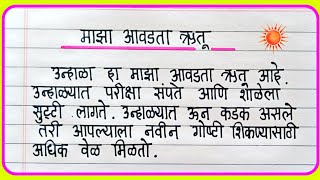 माझा आवडता ऋतू
उन्हाळा हा माझा आवडता ऋतू आहे.
उन्हाळ्यात परीक्षा संपते आणि शाळेला
सुट्टी लागते. उन्हाळ्यात ऊन कडक असले
तरी आपल्याला नवीन गोष्टी शिकण्यासाठी
अधिक वेळ मिळतो.